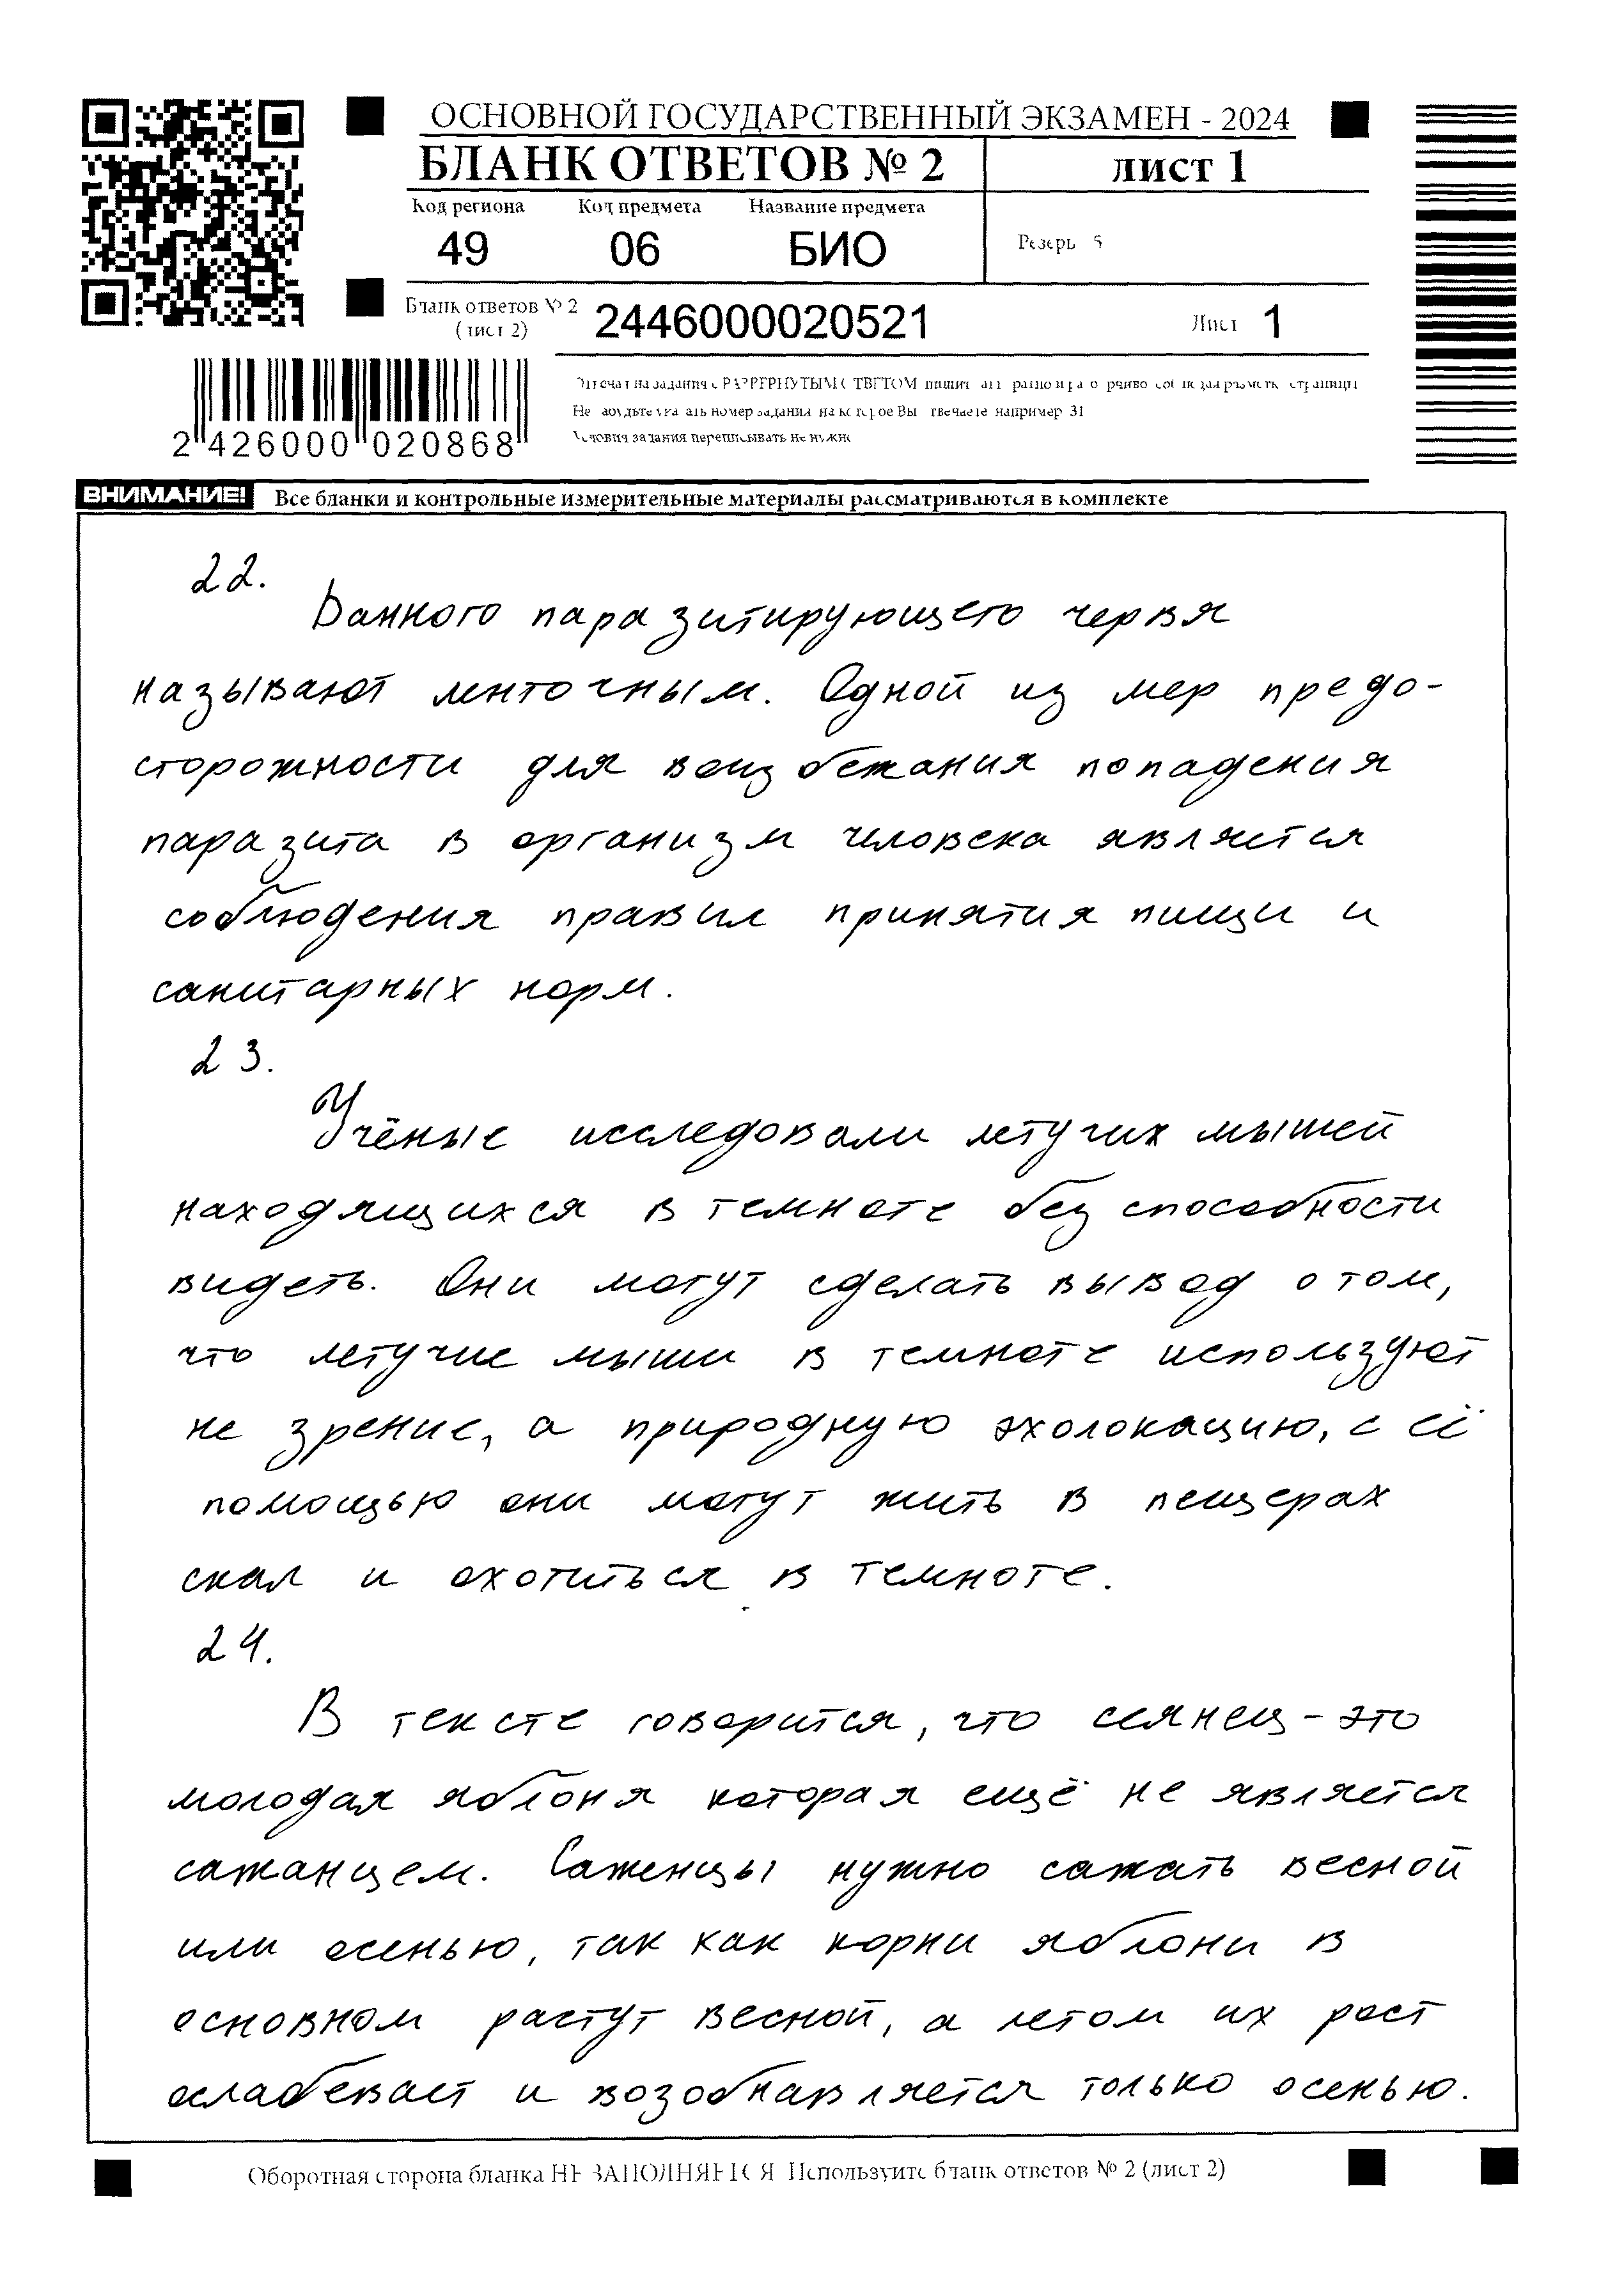 ОСНОВНОЙ ГОСУДАРСТВЕННЫЙ ЭКЗАМЕН - 2024
БЛАНК ОТВЕТОВ № 2
лист 1
Код региона Код предмета Название предмета
49 06 БИО
Резерв 5
Бланк ответов № 2
(лист 2)
2446000020521
Лист 1
2 426000 020868
Условия задания переписывать не нужно
ВНИМАНИЕ! Все бланки и контрольные измерительные материалы рассматриваются в комплекте
22.
Данного паразитирующего червя
называют ленточным. Одной из мер предо-
сторожности для воизбежания попадения
паразита в организм человека является
соблюдения правил принятия пищи и
санитарных норм.
23.
Учёные исследовали летучих мышей
находящихся в темноте без способности
видеть. Они могут сделать вывод о том,
что летучие мыши в темноте используют
не зрение, а природную эхолокацию, с её
помощью они могут жить в пещерах
скал и охотиться в темноте.
24.
В тексте говорится, что сеянец - это
молодая яблоня которая ещё не является
сажанцем. Саженцы нужно сажать весной
или осенью, так как корни яблони в
основном растут весной, а летом их рост
ослабевает и возобнавляется только осенью.
Оборотная сторона бланка НЕ ЗАПОЛНЯЕТСЯ. Используйте бланк ответов № 2 (лист 2)